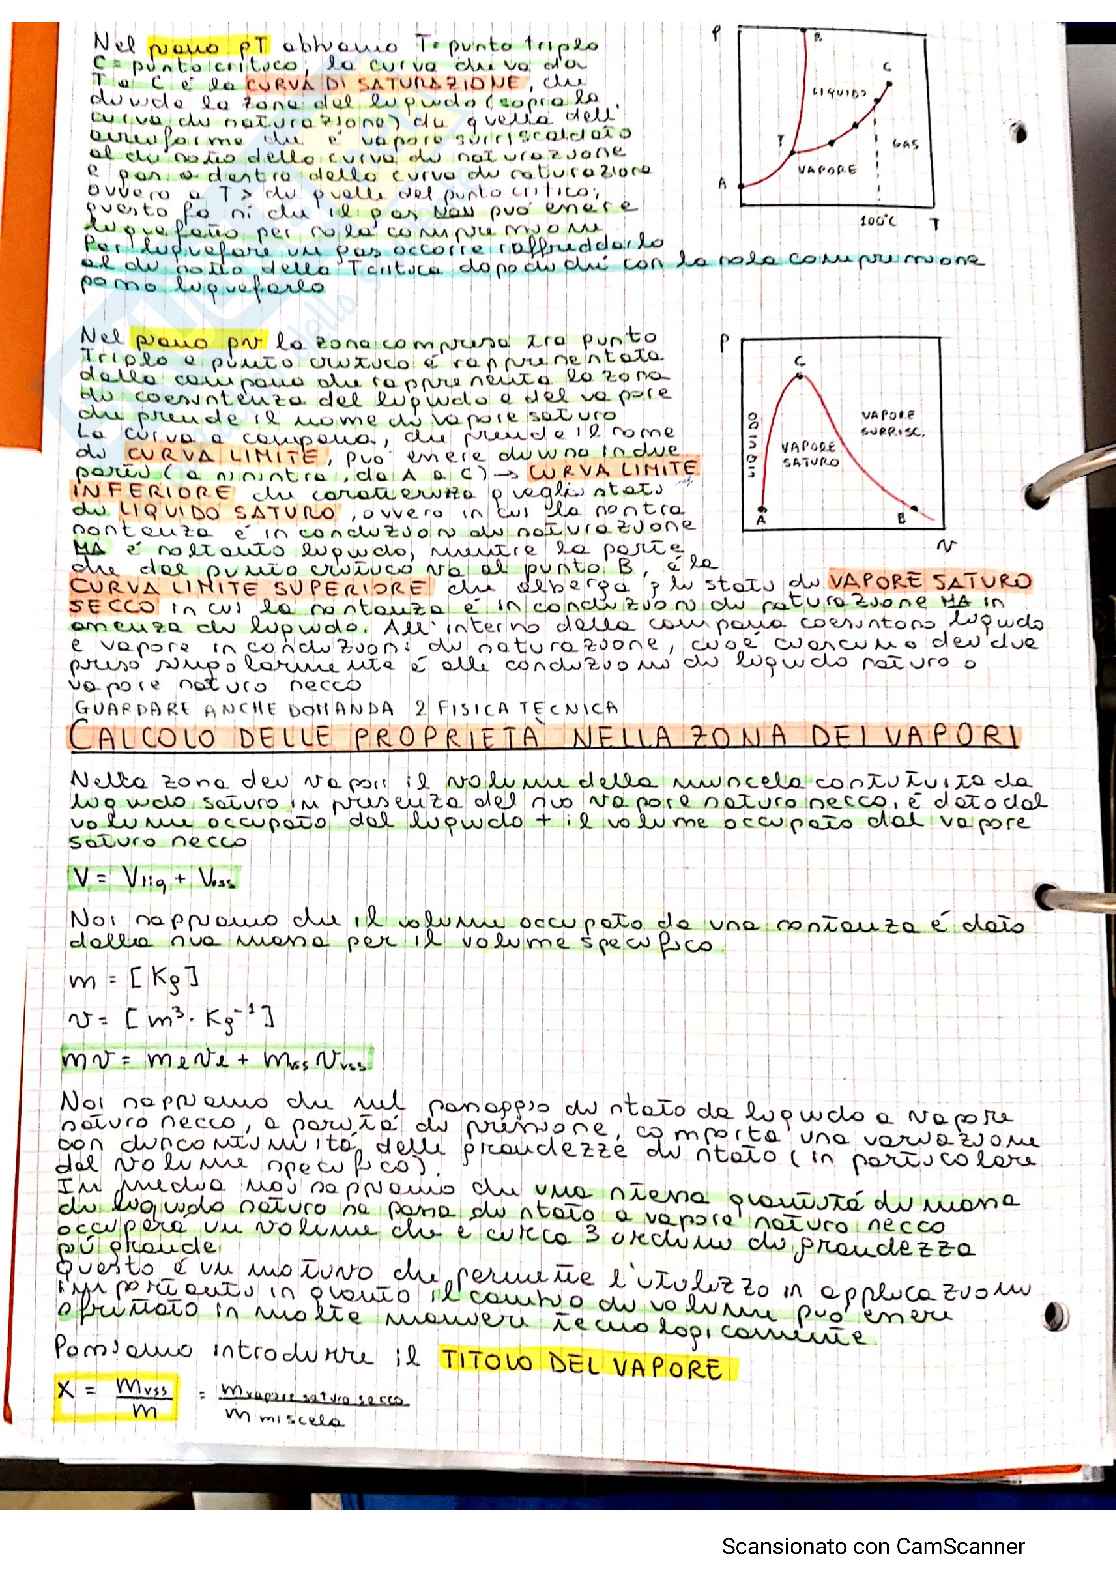 Nel piano pT abbiamo T= punto triplo
C= punto critico, la curva che va da
T a C è la CURVA DI SATURAZIONE, che
divide la zona del liquido (sopra la
curva di saturazione) da quella dell'
aeriforme che è vapore surriscaldato
al di sotto della curva di saturazione
e gas a destra della curva di saturazione
ovvero a T > di quelle del punto critico;
questo fa sì che il gas NON può essere
liquefatto per sola compressione
Per liquefare un gas occorre raffreddarlo
al di sotto della Tcritica dopodiché con la sola compressione
posso liquefarlo
P
B
C
LIQUIDO
GAS
T
VAPORE
A
100°C
T
Nel piano pv la zona compresa tra punto
Triplo e punto critico è rappresentata
dalla campana che rappresenta la zona
di coesistenza del liquido e del vapore
che prende il nome di vapore saturo
La curva a campana, che prende il nome
di CURVA LIMITE, può essere divisa in due
parti (a sinistra, da A a C) → CURVA LIMITE
INFERIORE che caratterizza quegli stati
di LIQUIDO SATURO, ovvero in cui la nostra
sostanza è in condizioni di saturazione
MA è soltanto liquido, mentre la parte
che dal punto critico va al punto B, è la
CURVA LIMITE SUPERIORE che alberga gli stati di VAPORE SATURO
SECCO in cui la sostanza è in condizioni di saturazione MA in
assenza di liquido. All'interno della campana coesistono liquido
e vapore in condizioni di saturazione, cioè ciascuno dei due
preso singolarmente è alle condizioni di liquido saturo o
vapore saturo secco
P
C
LIQUIDO
VAPORE
SATURO
VAPORE
SURRISC.
A
B
v
GUARDARE ANCHE DOMANDA 2 FISICA TECNICA
CALCOLO DELLE PROPRIETÀ NELLA ZONA DEI VAPORI
Nella zona dei vapori il volume della miscela costituita da
liquido saturo in presenza del suo vapore saturo secco, è dato dal
volume occupato dal liquido + il volume occupato dal vapore
saturo secco
V = Vliq + Vvss
Noi sappiamo che il volume occupato da una sostanza è dato
dalla sua massa per il volume specifico
m = [Kg]
v = [m³· Kg⁻¹]
mv = mℓvℓ + mvss vvss
Noi sappiamo che nel passaggio di stato da liquido a vapore
saturo secco, a parità di pressione, comporta una variazione
con discontinuità delle grandezze di stato (in particolare
del volume specifico).
In media noi sappiamo che una stessa quantità di massa
di liquido saturo se passa di stato a vapore saturo secco
occuperà un volume che è circa 3 ordini di grandezza
più grande
Questo è un motivo che permette l'utilizzo in applicazioni
importanti in quanto il cambio di volume può essere
sfruttato in molte maniere tecnologicamente.
Possiamo introdurre il TITOLO DEL VAPORE
X = mvss / m = mvapore saturo secco / m miscela
Scansionato con CamScanner